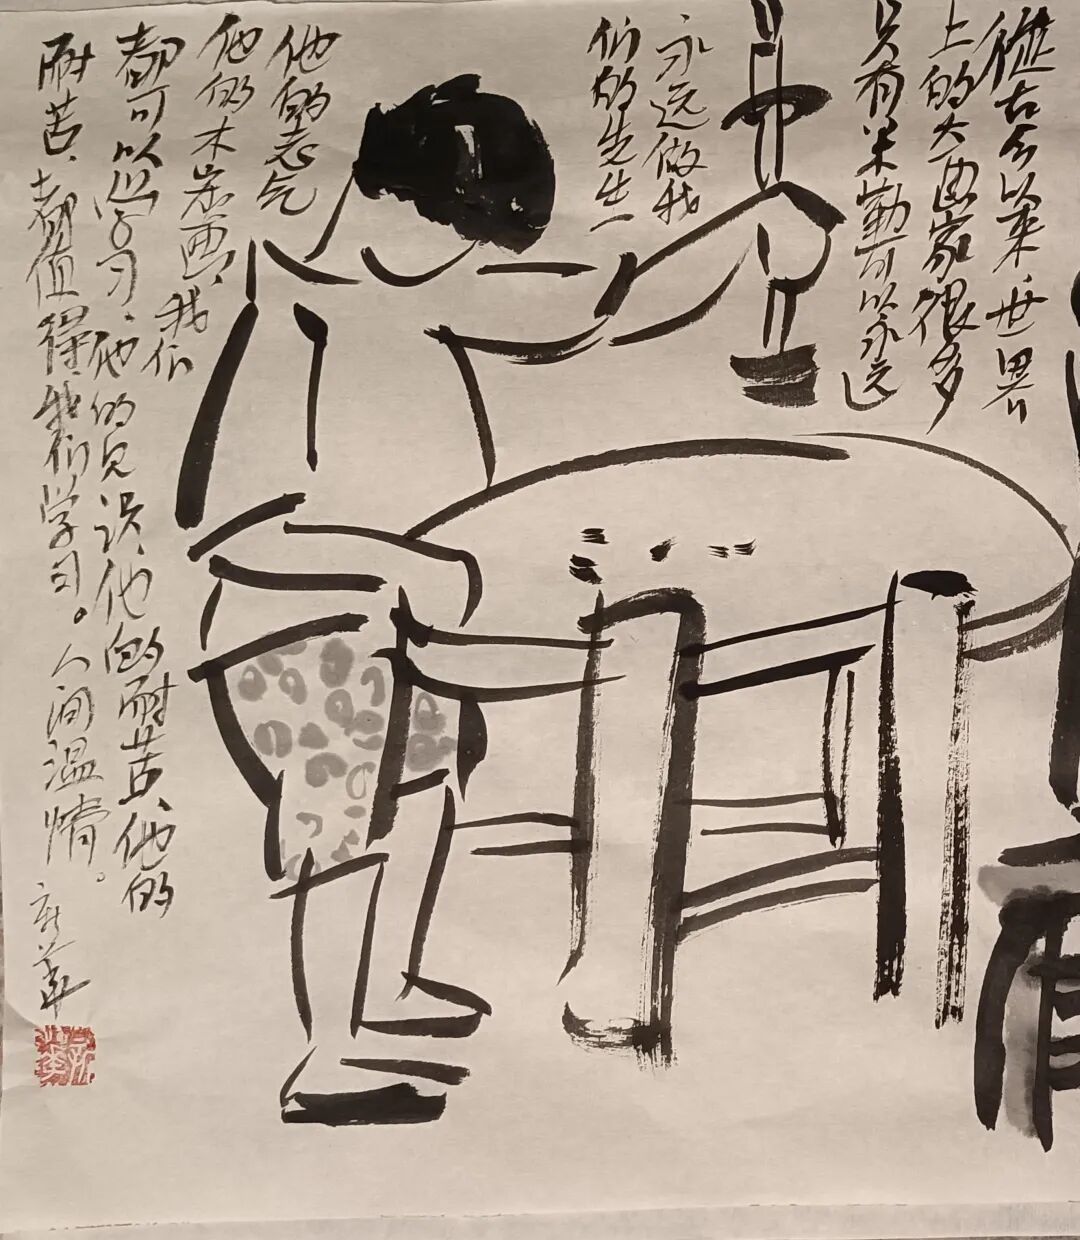 從古今以来、世界
上的大画家很多
只有米勒可以永远
永远做我
们的先生一
他的志气
他的木炭画、我们
都可以学习、他的见识、他的耐苦、他的
耐苦、都值得我们学习。人间温情。